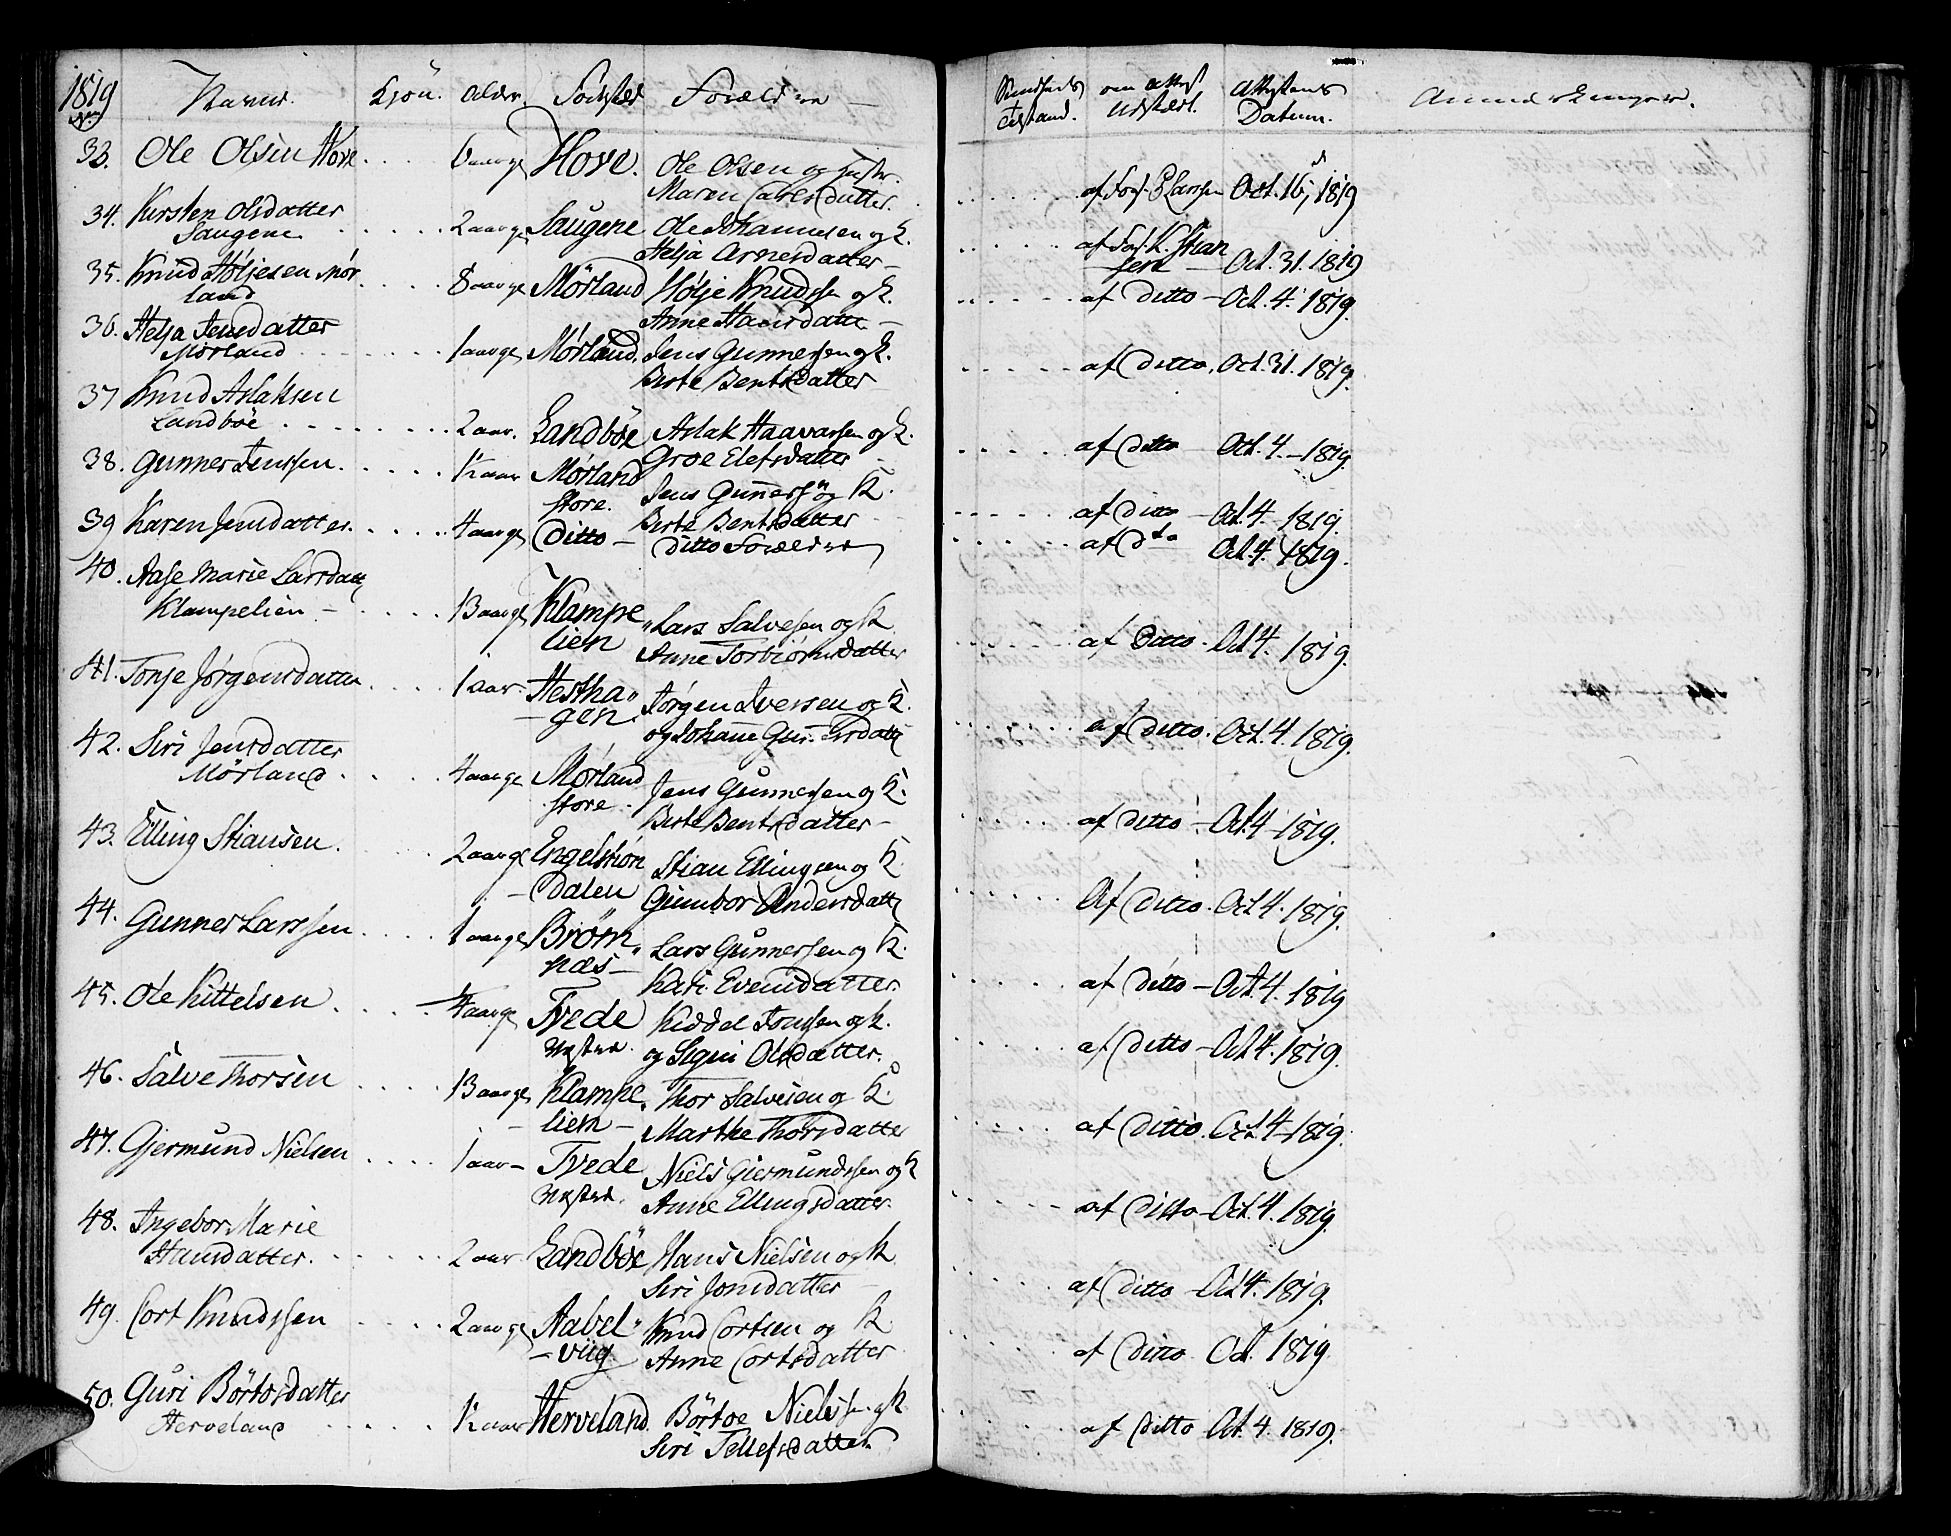 1819 Navne. Kjön. Alder. Fødested Forældre — Sundheds Tilstand. om Attest Udstædt. Attestens Datum. Anmærkninger.
No
33. Ole Olsen Hove . . . . 6 aar ge Hove. Ole Olsen og
Maren Carlsdatter. . . . . . af Larsen Oct. 16, 1819
34. Kirsten Olsdatter
Saugene . . . . . 2 aarge Saugene Ole Johannesen og K.
Helja Arnesdatter — . . . . . af Stian
sen — Oct. 31. 1819
35. Knud Höljesen Mör
land . . . . 8 aarge Mörland Hölje Knudsen og K.
Anne Hansdatter — . . . . . af Ditto — Oct. 4. 1819.
36. Helja Jensdatter
Mörland . . . . . 1 aarge Mörland. Jens Gunnersen og K.
Berte Bentsdatter — . . . . . af Ditto. Oct. 31. 1819.
37 Knud Aslaksen
Sandböe . . . . . 2 aar. Sandböe Aslak Haavorsen og K.
Groe Elefsdatter — . . . . . af Ditto Oct. 4. 1819.
38. Gunner Jenssen. . . . . ½ aar Mörland
store. Jens Gunners og K.
Berte Bentsdatter — . . . . . af Ditto — Oct. 4. 1819.
39 Karen Jensdatter. . . . . 4 aarge Ditto — Ditto Forældre . . . . . af Dto Oct. 4. 1819.
40. Aase Marie Larsdatt
Klampelien — . . . . 13 aarge Klampe
lien Lars Salvesen og K
Anne Torbiörnsdatter . . . . . af Ditto. Oct 4. 1819.
41. Tonje Jörgensdatter . . . . 1 aar. Hestha
— gen. Jörgen Iversen og K.
og Johanne . . . . . af ditto. Oct. 4. 1819.
42. Siri Jensdatter
Mörland . . . . 4 aarge Mörland
store. Jens Gunnersen og K.
Berte Bentsdatter — . . . . . af Ditto. Oct. 4. 1819.
43. Elling Stiansen . . . . 2 aarge Engelstiön
— dalen Stian Ellingsen og K.
Gunbor Andersdatt . . . . . Af Ditto. Oct. 4. 1819.
44. Gunner Larssen . . . . 1 aarge Bröm
næs — Lars Gunnersen og K.
Kari Evensdatter . . . . af Ditto — Oct. 4. 1819
45. Ole Kittelsen . . . . 4 aarge Tvede
Vestre. Kiddel Tonssen og K.
og Signi Olsdatter. . . . . af Ditto — Oct. 4. 1819.
46. Salve Thorsen . . . . 13 aarge Klampe
lien — Thor Salvesen og K.
Marthe Thorsdatter . . . . . af Ditto. Oct. 4. 1819.
47. Gjermund Nielsen . . . . 1 aar — Tvede
Vestre. Niels Giermundssen og K
Anne Ellingsdatter. . . . . af Ditto — Oct. 4. 1819.
48. Ingebor Marie
Hansdatter. . . . . . 2 aar Sandböe Hans Nielsen og K
Siri Jonsdatter — . . . . af Ditto — Oct 4. 1819.
49. Cort Knudssen . . . . 2 aarge Aabel
— viig Knud Cortsen og K.
Anne Cortsdatter . . . . af Ditto. Oct. 1819
50. Guri Börtosdatter
Herveland . . . . . ½ aar Herveland. Börtoe Nielssen og K.
Siri Tellefsdatter . . . . af Ditto Oct. 4. 1819.